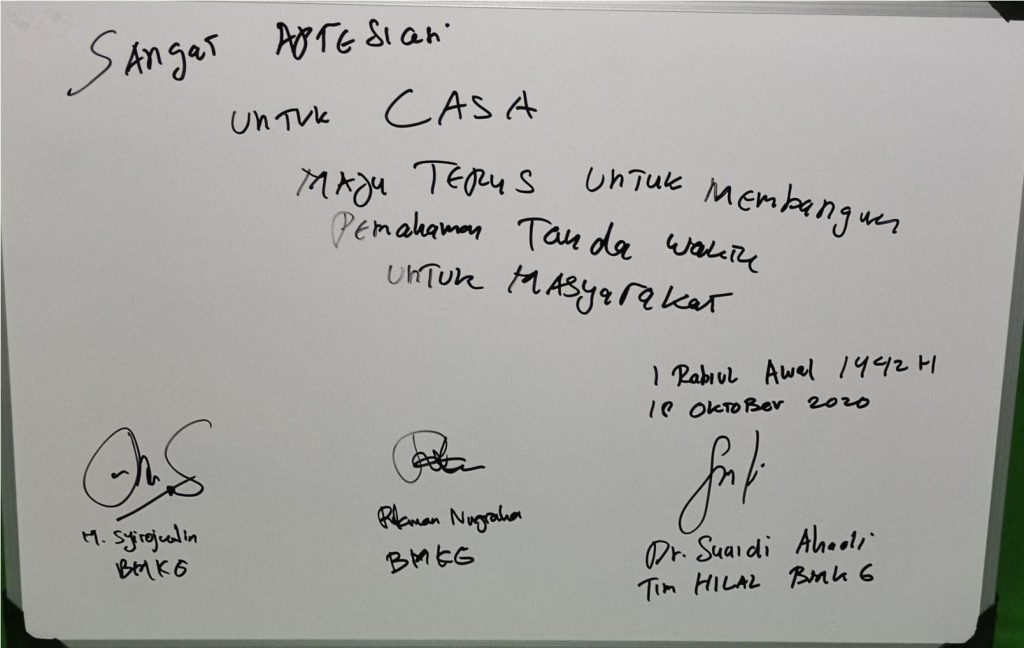 SANGAT APTESIAN
UNTUK CASA
MAJU TERUS UNTUK MEMBANGUN
PEMAHAMAN TANDA WAKTU
UNTUK MASYARAKAT
1 Rabiul Awal 1442 H
18 OKTOBER 2020
M. Syirojudin
BMKG
Rikman Nugraha
BMKG
Dr. Suaidi Ahadi
Tim HILAL BMKG